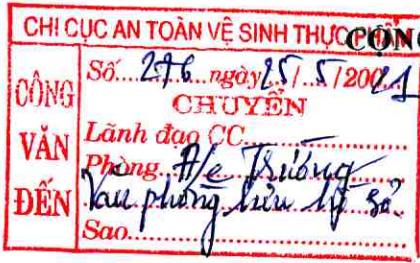 CHI CỤC AN TOÀN VỆ SINH THỰC PHẨM
CỘNG
CÔNG VĂN ĐẾN
Số 276 ngày 25/5/2021
CHUYỂN
Lãnh đạo CC
Phòng A/c Trưởng
Văn phòng lưu hồ sơ.
Sao